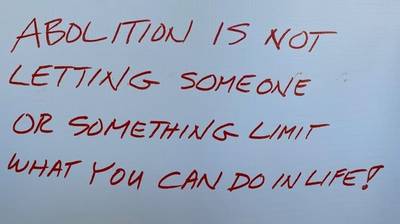 ABOLITION IS NOT
LETTING SOMEONE
OR SOMETHING LIMIT
WHAT YOU CAN DO IN LIFE!